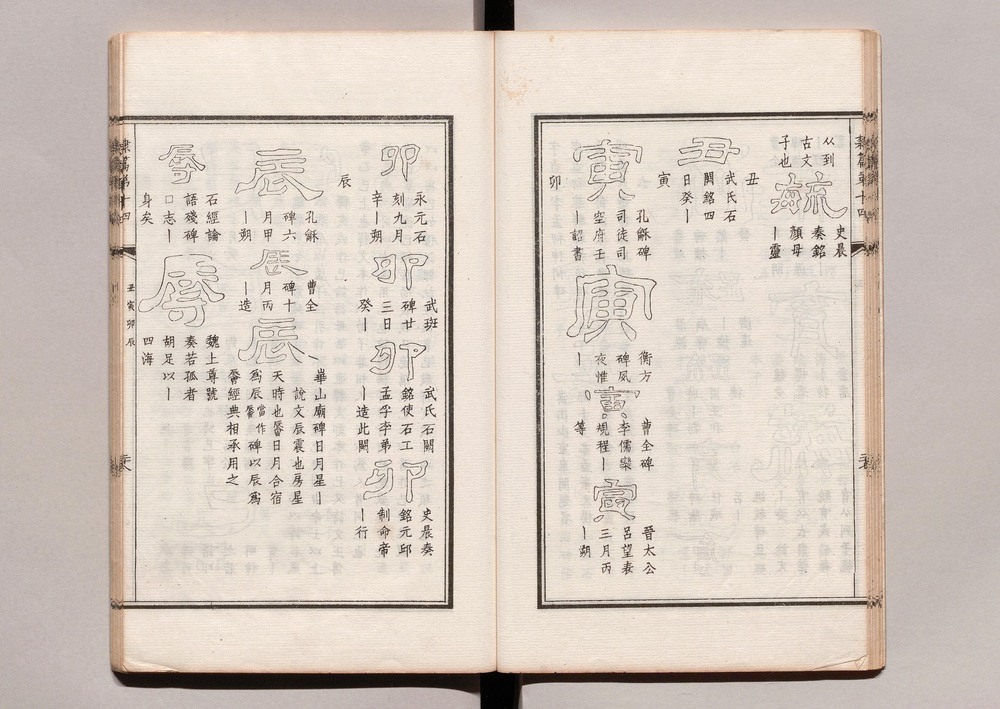 隸篇第十四
从到
古文
子也
毓
史晨
奏銘
顏母
丨靈
丑
丑
武氏石
闕銘四
日癸丨
寅
寅
孔龢碑
司徒司
空府壬
丨詔書
寅
衡方
碑夙
夜惟
丨
寅
曹全碑
李儒欒
規程丨
等
寅
晉太公
呂望表
三月丙
丨朔
卯
卯
永元石
刻九月
辛丨朔
卯
武班
碑廿
三日
癸丨
卯
武氏石闕
銘使石工
孟孚李弟
丨造此闕
卯
史晨奏
銘元邱
制命帝
丨行
辰
辰
孔龢
碑六
月甲
丨朔
辰
曹全
碑十
月丙
丨造
辰
華山廟碑日月星丨
說文辰震也房星
天時也㫳日月合宿
為辰㫳當作碑以辰為
㫳經典相承用之
辱
石經論
語殘碑
□志丨
身矣
辱
魏上尊號
奏若孤者
胡足以丨
四海
隸篇第十四
丑寅卯辰